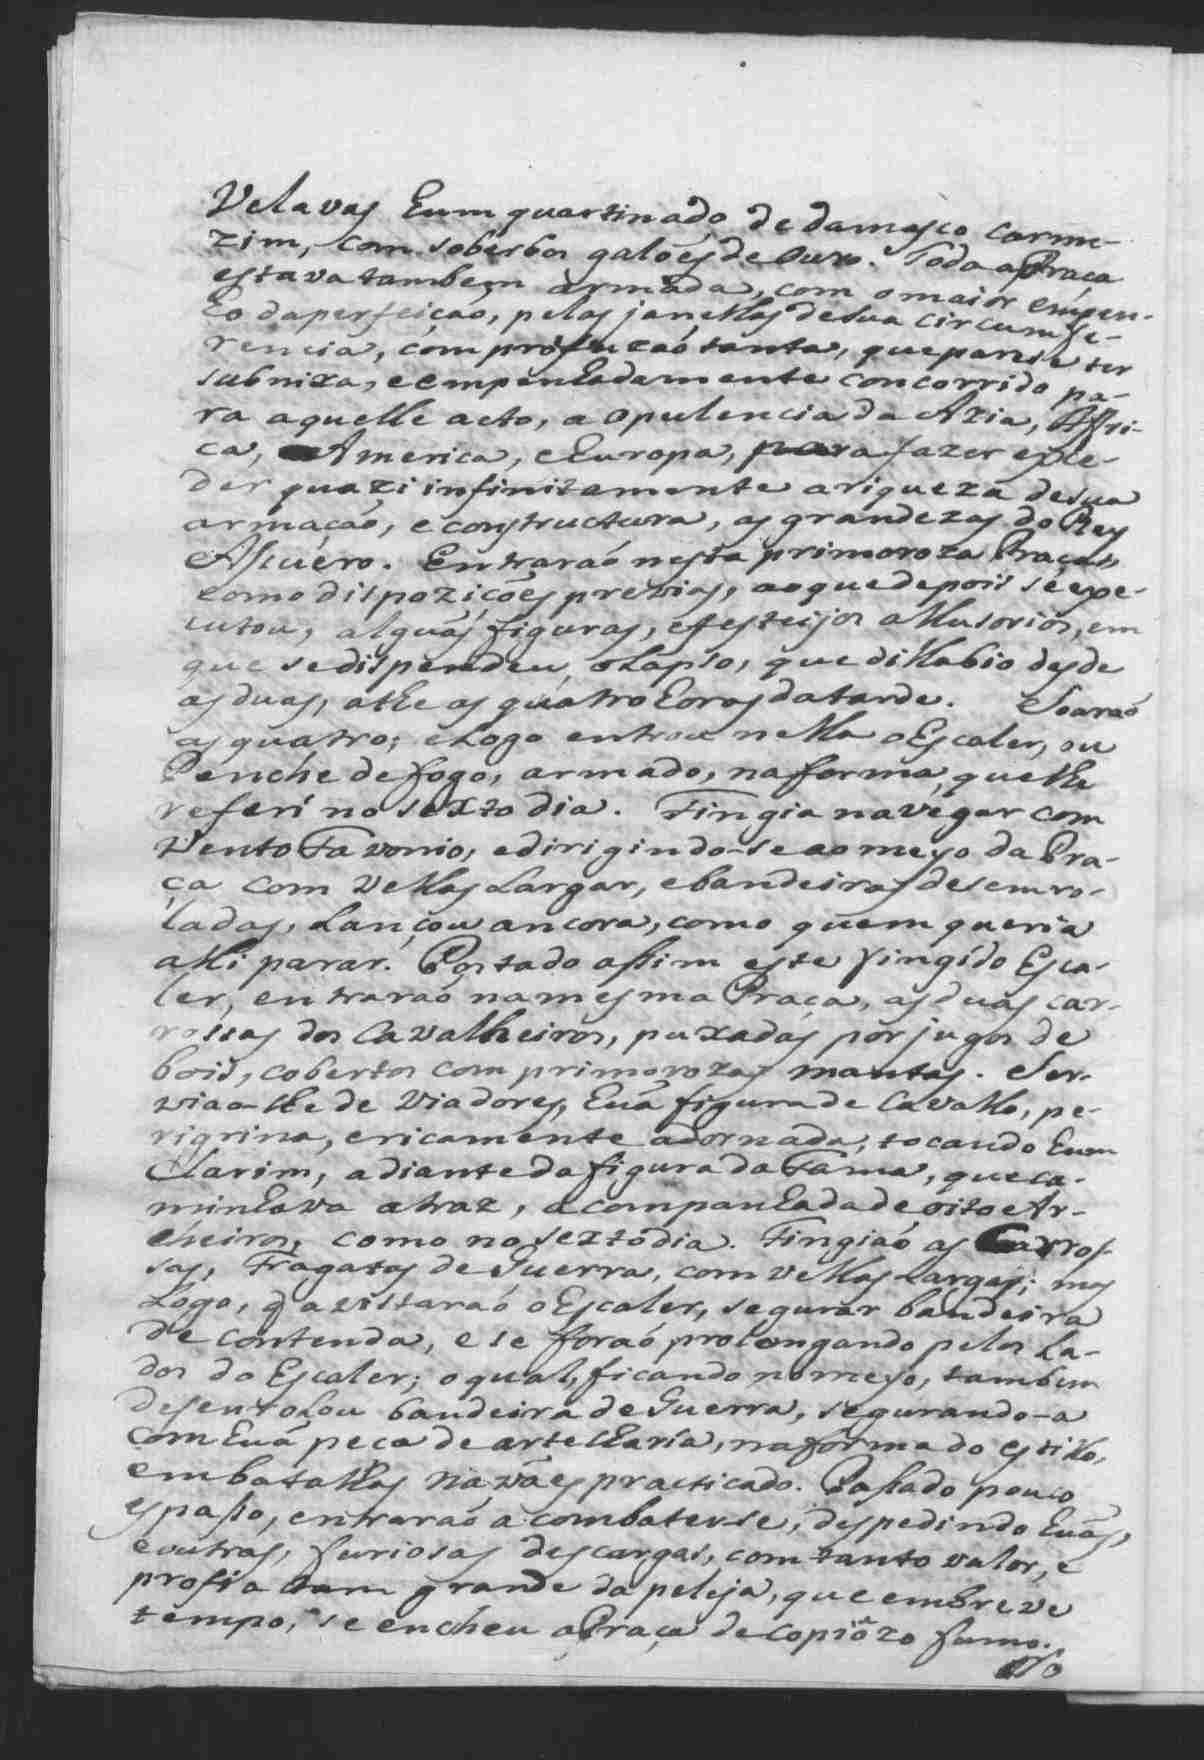 Velavas hum quartinado de damasco carme-
zim, com soberbos galoẽs de Ouro. Toda a Praça
estava tambem armada, com o maior empen-
ho da perfeiçaõ, pelas janellas de sua circumfe-
rencia, com profuzaõ tanta, que parecia ter
subnixa, e empenhadamente concorrido pa-
ra aquelle acto, a opulencia da Azia, Affri-
ca, America, e Europa, para fazer exce-
der quazi infinitamente a riqueza de sua
armaçaõ, e constructura, as grandezas do Rey
Assuéro. Entraraõ nesta primoroza Praça,
como dispoziçoẽs previas, ao que depois se exe-
cutou, alguãs figuras, e festeijos allusorios, em
que se dispendeu, o lapso, que dillabio desde
as duas, athe as quatro horas da tarde. Soaraõ
as quatro; e Logo entrou nella o Escaler, ou
Penche de fogo, armado, na forma, que lhe
referi no sexto dia. Fingia navegar com
Vento Favonio, e dirigindo-se ao meyo da Pra-
ça com Vellas Largas, e bandeiras desenro-
ladas, Lançou ancora, como quem queria
alli parar. Postado assim este fingido Esca-
ler, entraraõ na mesma Praça, as duas car-
rossas dos Cavalheiros, puxadas por jugos de
bois, cobertos com primorozas mantas. Ser-
viaõ-lhe de Viadores, huã figura de Cavallo, pe-
rigrina, e ricamente adornada, tocando hum
Clarim, a diante da figura da Fama, que ca-
minhava atraz, acompanhada de oito Ar-
cheiros, como no sexto dia. Fingiaõ as Carros-
sas, Fragatas de Guerra, com vellas Largas; mas
Logo, q̃ avistaraõ o Escaler, segurar bandeira
de contenda, e se foraõ prolongando pelos La-
dos do Escaler; o qual, ficando no meyo, tambem
desenrolou bandeira de Guerra, segurando-a
com huã peça de artelharia, na forma do estillo,
em batalhas navaẽs practicado. Passado pouco
espasso, entraraõ a combater-se, despedindo huãs,
e outras, furiosas descargas, com tanto valor, e
profia tam grande da peleja, que em breve
tempo, se encheu a Praça de copiôzo fumo.
No